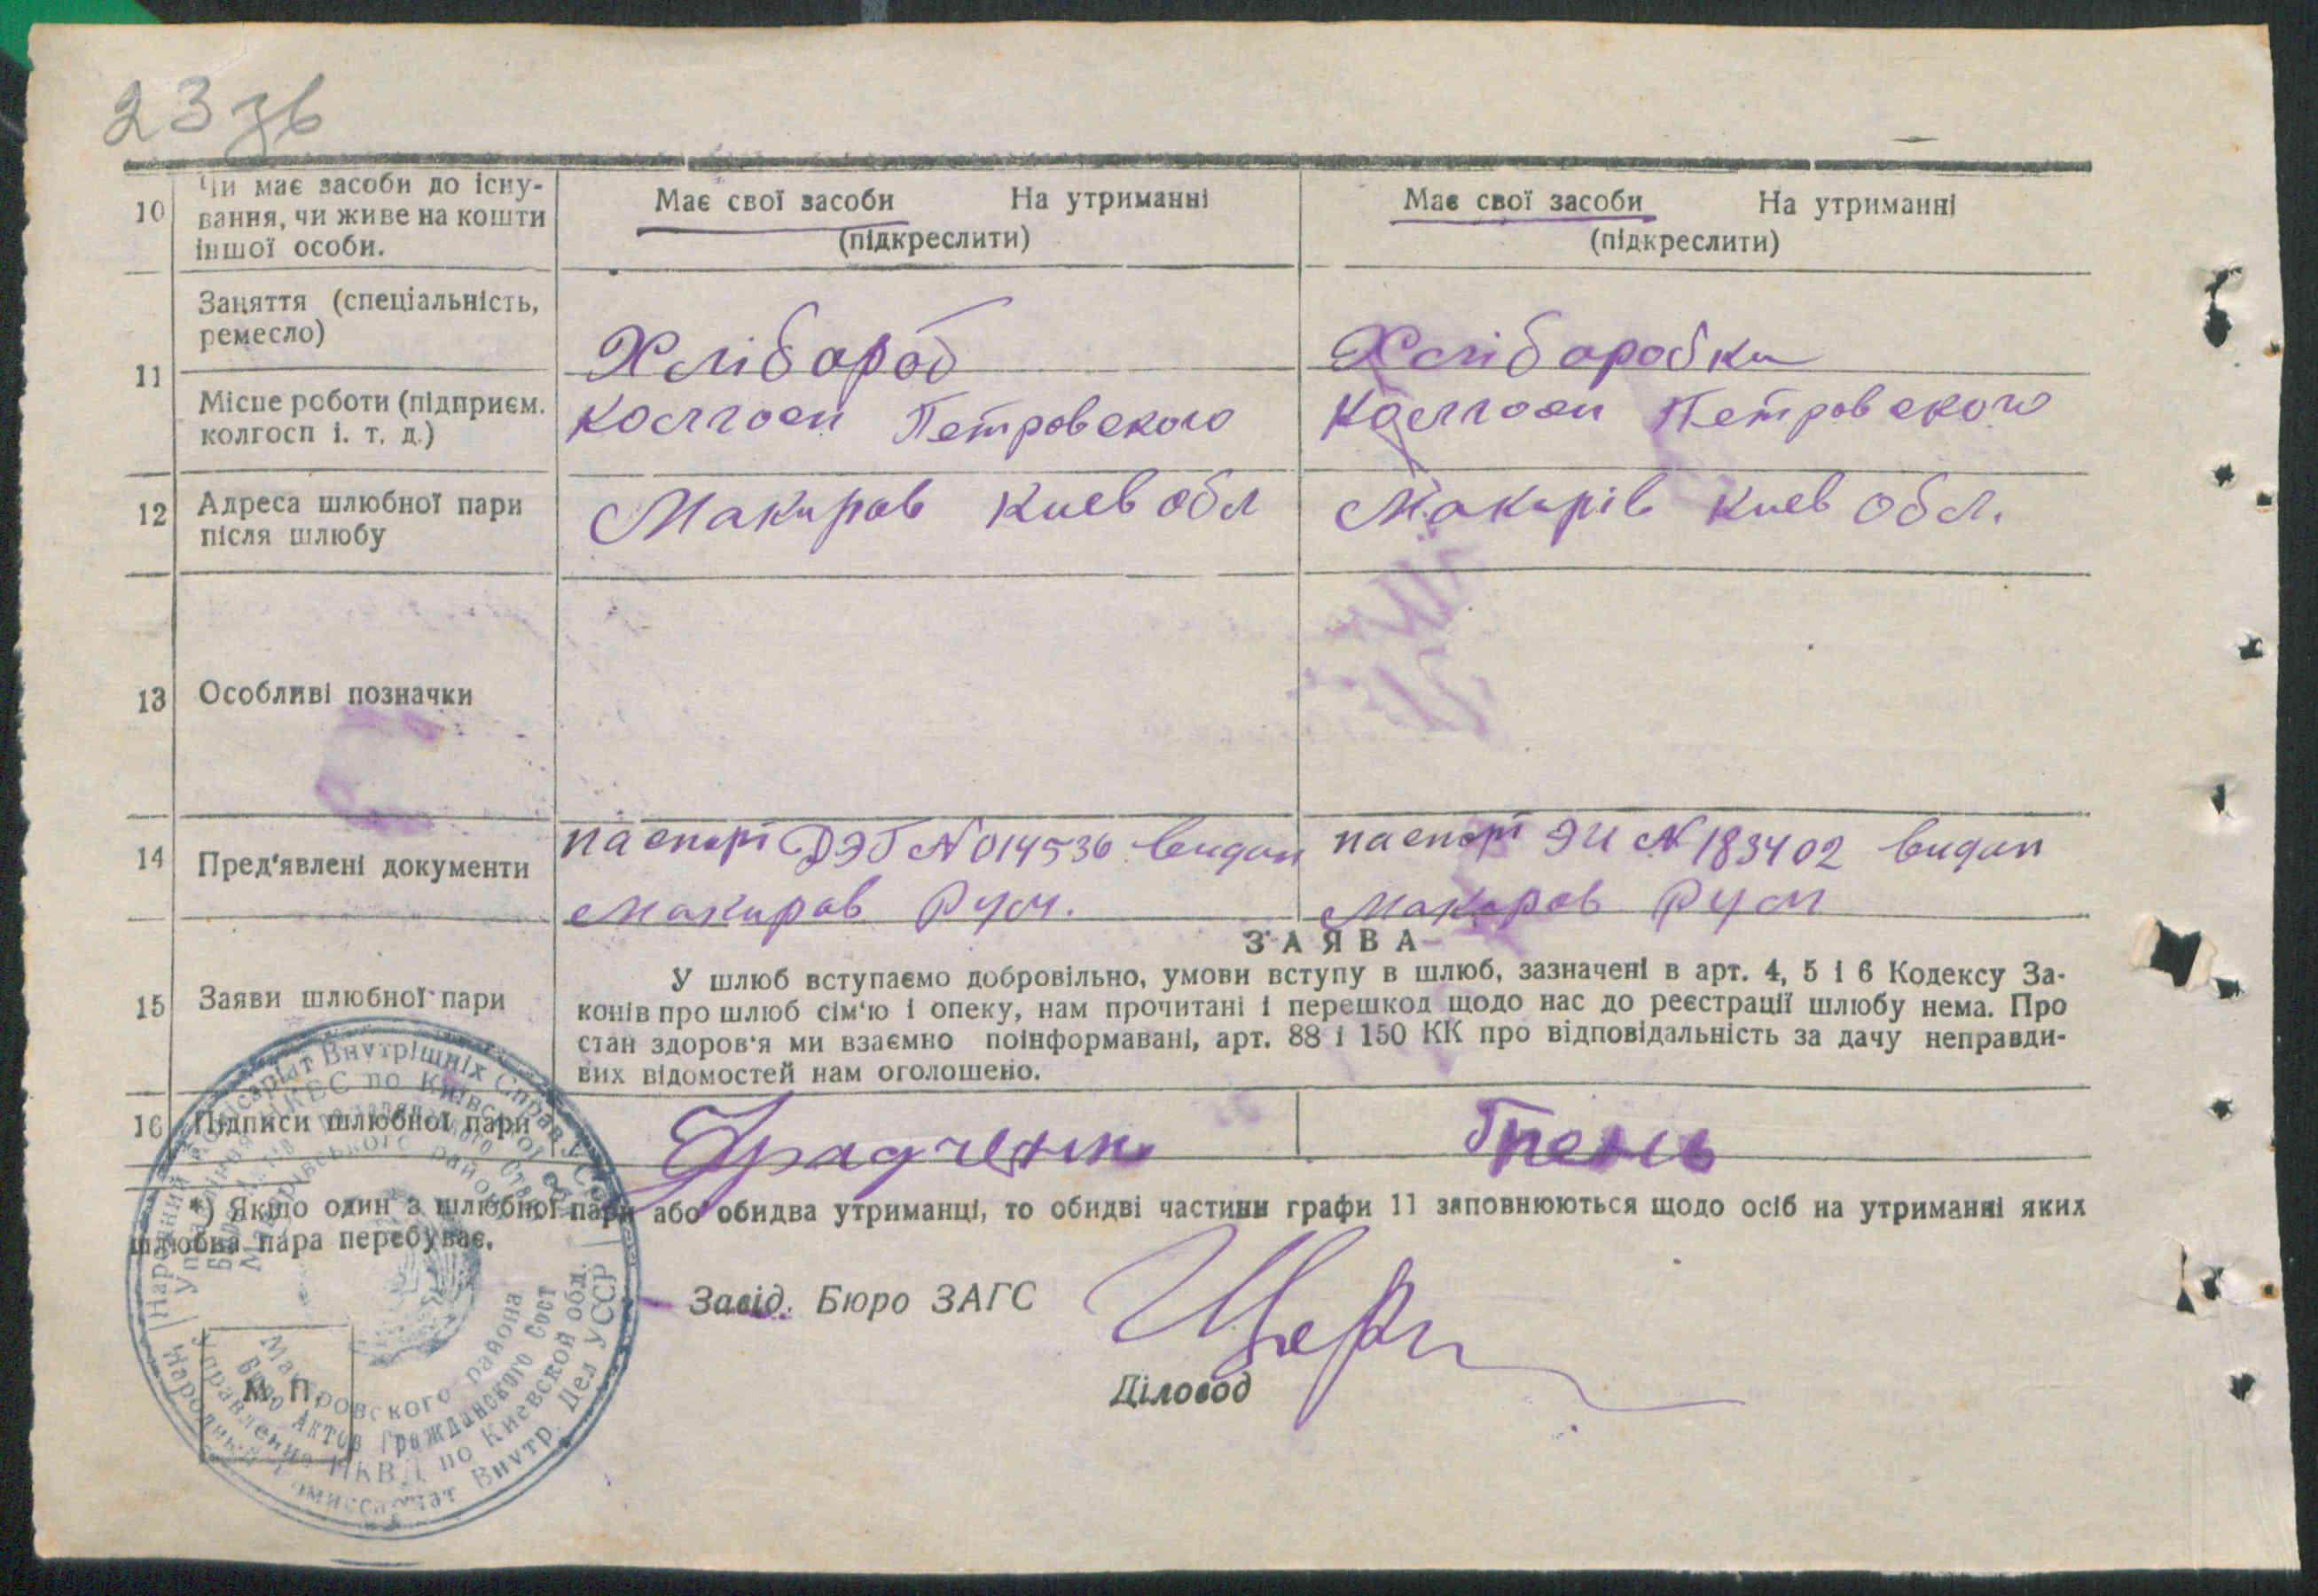 23 зв
10
Чи має засоби до існу-
вання, чи живе на кошти
іншої особи.
Має свої засоби На утриманні
(підкреслити)
Має свої засоби На утриманні
(підкреслити)
11
Заняття (спеціальність,
ремесло)
Хлібороб
Хліборобка
Місце роботи (підприєм.
колгосп і. т. д.)
Колгосп Петровского
Колгосп Петровского
12
Адреса шлюбної пари
після шлюбу
Макаров Киев обл
Макарів Киев обл.
13
Особливі позначки
14
Пред'явлені документи
паспорт ДЭГ №014536 видан
Макаров РУМ.
паспорт ЭИ № 183402 видан
Макаров РУМ
15
Заяви шлюбної пари
ЗАЯВА
У шлюб вступаємо добровільно, умови вступу в шлюб, зазначені в арт. 4, 5 і 6 Кодексу За-
конів про шлюб сім'ю і опеку, нам прочитані і перешкод щодо нас до реєстрації шлюбу нема. Про
стан здоров'я ми взаємно поінформавані, арт. 88 і 150 КК про відповідальність за дачу неправди-
вих відомостей нам оголошено.
16
Підписи шлюбної пари
*) Якщо один з шлюбної пари або обидва утриманці, то обидві частини графи 11 заповнюються щодо осіб на утриманні яких
шлюбна пара перебуває.
Завід. Бюро ЗАГС
Діловод
М. П.
Народний Комісаріат Внутрішніх Справ УССР
Управління НКВС по Київської обл.
Макарівського району
Макаровского района
Бюро Актов Гражданского Сост
Управление НКВД по Киевской обл.
Народный Комиссариат Внутр. Дел УССР